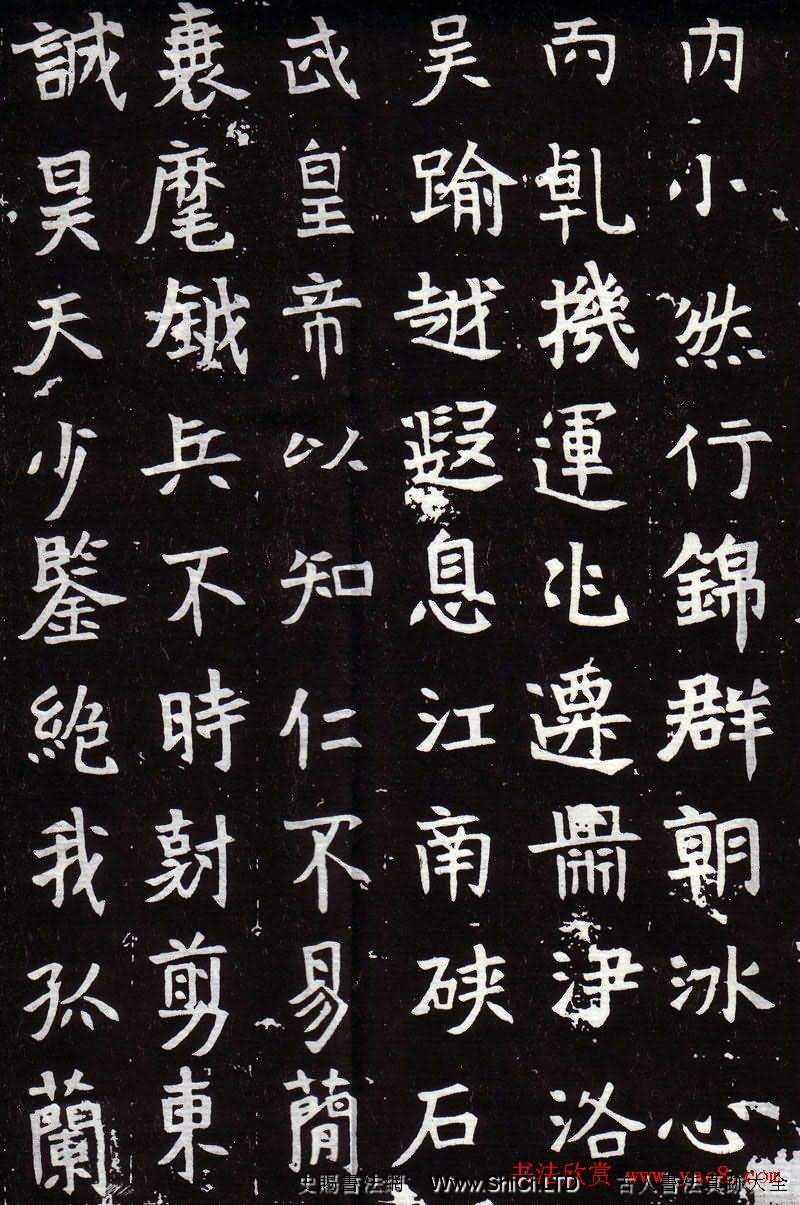 內小然行錦群朝冰心
丙乹機運兆遷鼎洢洛
吴踰越遐息江南硖石
武皇帝以知仁不易簡
麾鉞兵不時剪東
誠昊天少鑒絶我孤蘭
书法欣赏 www.yac8.com
史賜書法網 Www.ShiCi.LTD 古人書法真跡大全